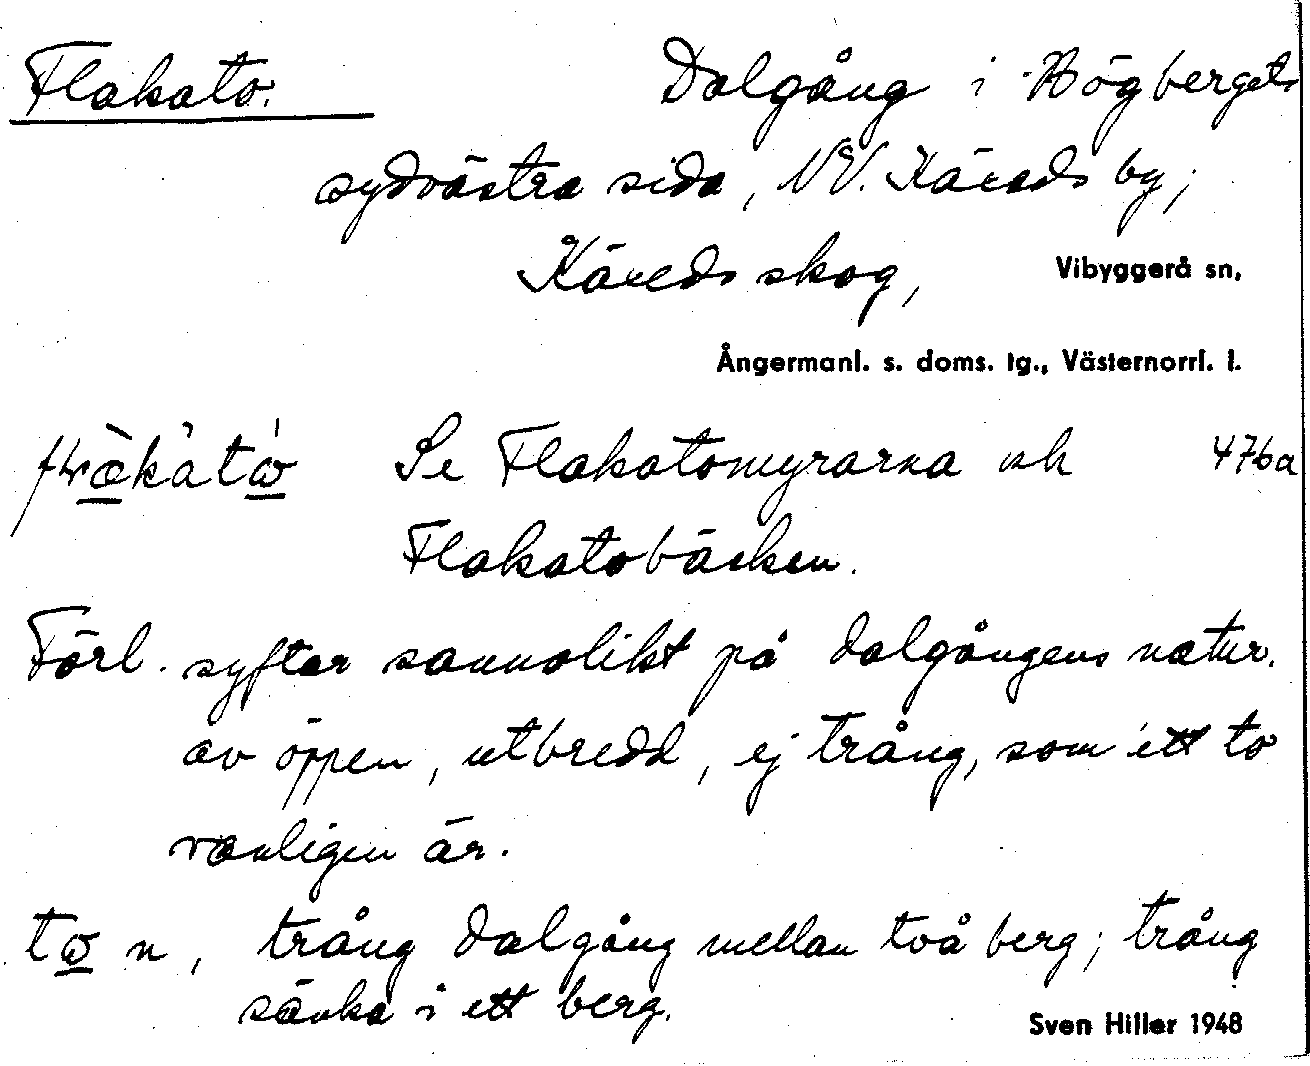 Flakato. Dalgång i Högbergets
sydvästra sida, NV. Käxeds by,
Käxeds skog, Vibyggerå sn,
Ångermanl. s. doms. tg., Västernorrl. l.
Se Flakatomyrarna och 476a
Flakatobäcken.
Förl. syftar sannolikt på dalgångens natur.
av öppen, utbredd, ej trång, som ett to
vanligen är.
to n, trång dalgång mellan två berg; trång
sänka i ett berg.
Sven Hiller 1948